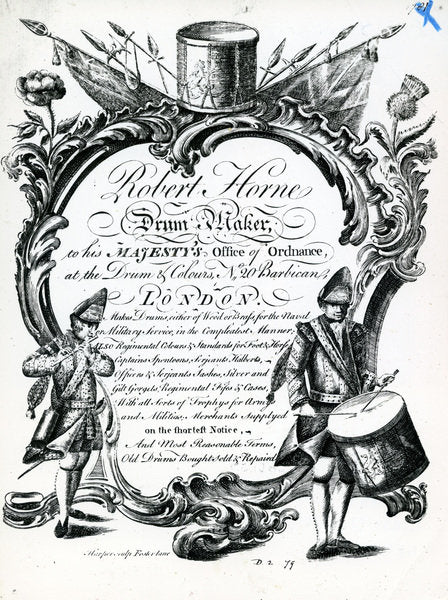 Robert Horne
Drum Maker,
to his MAJESTY'S Office of Ordnance,
at the Drum & Colours, No. 20 Barbican,
LONDON.
Makes Drums, either of Wood or Brass, for the Naval
or Military Service, in the Compleatest Manner;
ALSO Regimental Colours & Standards for Foot & Horse
Captains Spontoons, Serjants Halberts,
Officers & Serjeants Sashes, Silver and
Gilt Gorgets, Regimental Fifes & Cases,
With all Sorts of Trophys for Army
and Militia; Merchants Supplyed
on the shortest Notice,
And Most Reasonable Terms,
Old Drums Bought Sold & Repaired
Harper sculp Foster lane
D. 2 79